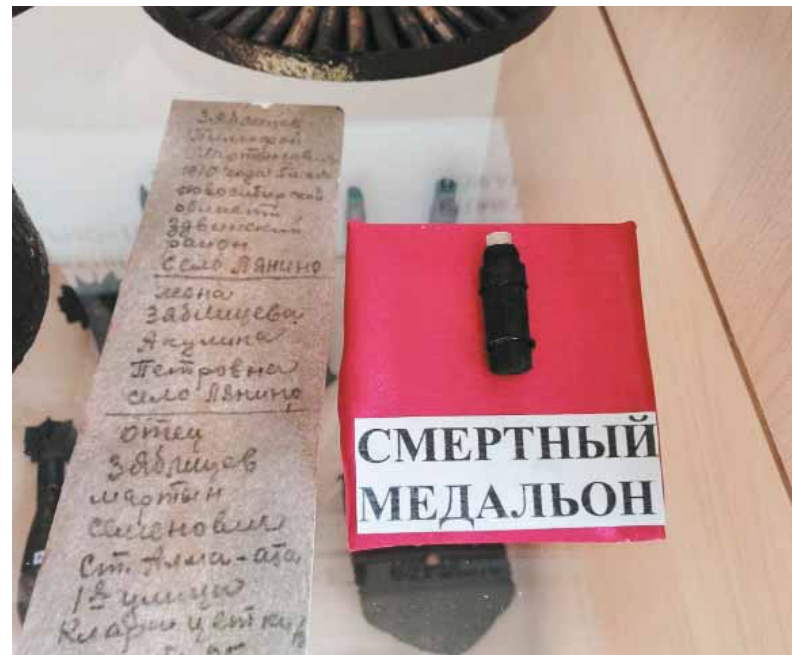 Зяблицев
Мартынович
1910 года
новосибирской
области
Здвинский
район
село Лянино
жена
Зяблицева
Акулина
Петровна
село Лянино
отец
Зяблицев
мартын
семенович
ст. Алма-ата
1я улица
Клары цеткин
СМЕРТНЫЙ
МЕДАЛЬОН